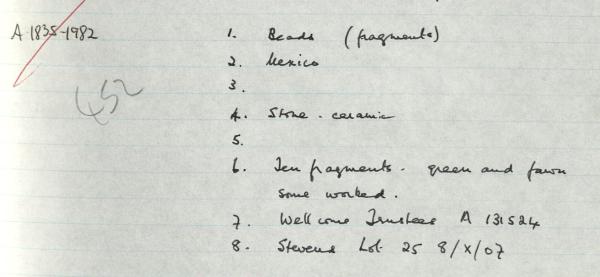 A 1835-1982
1. Beads (fragments)
2. Mexico
3.
4. Stone. ceramic
5.
6. Ten fragments. green and fawn
some worked.
7. Wellcome Trustees A 131524
8. Stevens Lot 25 8/X/07
452